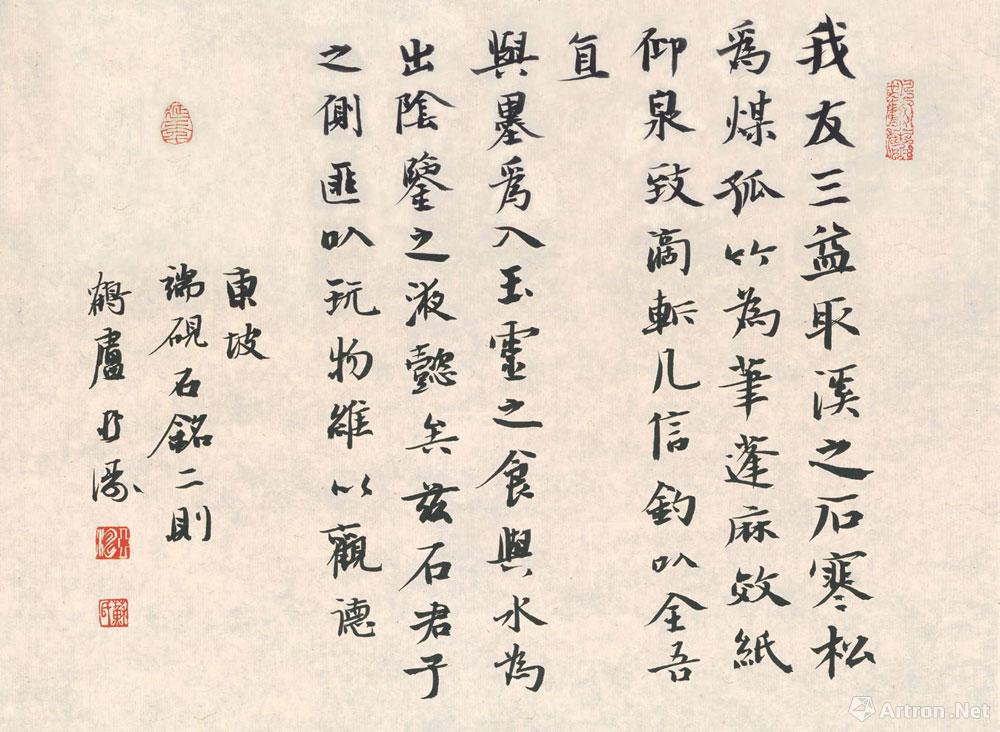 我友三益取溪之石寒松
為煤孤竹為筆蓬麻效紙
仰泉致滴斬几信鈎以全吾
直
與墨為入玉靈之食與水為
出陰鑒之液懿矣茲石君子
之側匪以玩物維以觀德
東坡
端硯石銘二則
鶴廬
Artron.Net